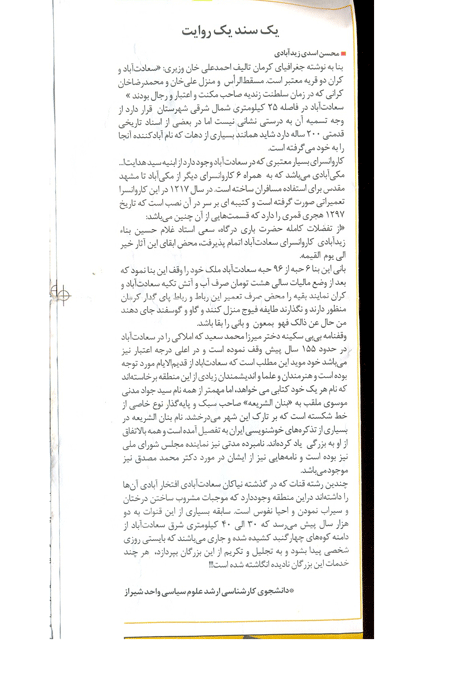 یک سند یک روایت
■ محسن اسدی زیدآبادی
بنا به نوشته جغرافیای کرمان تالیف احمدعلی خان وزیری: «سعادت‌آباد و
کران دو قریه معتبر است. مسقط‌الرأس و منزل علی‌خان و محمدرضاخان
کرانی که در زمان سلطنت زندیه صاحب مکنت و اعتبار و رجال بودند»
سعادت‌آباد در فاصله ۲۵ کیلومتری شمال شرقی شهرستان قرار دارد از
وجه تسمیه آن به درستی نشانی نیست اما در بعضی از اسناد تاریخی
قدمتی ۲۰۰ ساله دارد شاید همانند بسیاری از دهات که نام آبادکننده آنجا
را به خود می‌گرفته است.
کاروانسرای بسیار معتبری که در سعادت‌آباد وجود دارد از ابنیه سید هدایت‌ا...
مکی‌آبادی می‌باشد که به همراه ۶ کاروانسرای دیگر از مکی‌آباد تا مشهد
مقدس برای استفاده مسافران ساخته است. در سال ۱۲۱۷ در این کاروانسرا
تعمیراتی صورت گرفته است و کتیبه ای بر سر در آن نصب است که تاریخ
۱۲۹۷ هجری قمری را دارد که قسمت‌هایی از آن چنین می‌باشد:
«از تفضلات کامله حضرت باری درگاه، سعی استاد غلام حسین بناء
زیدآبادی کاروانسرای سعادت‌آباد اتمام پذیرفت، محض ابقای این آثار خیر
الی یوم القیمه.
بانی این بنا ۶ حبه از ۹۶ حبه سعادت‌آباد ملک خود را وقف این بنا نمود که
بعد از وضع مالیات سالی هشت تومان صرف آب و آتش تکیه سعادت‌آباد و
کران نمایند بقیه را محض صرف تعمیر این رباط و رباط پای گدار کرمان
منظور دارند و نگذارند طایفه فیوج منزل کنند و گاو و گوسفند جای دهند
من حال عن ذالک فهو بمعون و بانی را بقا باشد.
وقفنامه بی‌بی سکینه دختر میرزا محمد سعید که املاکی را در سعادت‌آباد
در حدود ۱۵۵ سال پیش وقف نموده است و در اعلی درجه اعتبار نیز
می‌باشد خود موید این مطلب است که سعادت‌آباد از قدیم‌الایام مورد توجه
بوده است و هنرمندان و علما و اندیشمندان زیادی از این منطقه برخاسته‌اند
که نام هر یک خود کتابی می خواهد، اما مهمتر از همه نام سید جواد مدنی
موسوی ملقب به «بنان الشریعه» صاحب سبک و پایه‌گذار نوع خاصی از
خط شکسته است که بر تارک این شهر می‌درخشد. نام بنان الشریعه در
بسیاری از تذکره‌های خوشنویسی ایران به تفصیل آمده است و همه بالاتفاق
از او به بزرگی یاد کرده‌اند. نامبرده مدتی نیز نماینده مجلس شورای ملی
نیز بوده است و نامه‌هایی نیز از ایشان در مورد دکتر محمد مصدق نیز
موجود می‌باشد.
چندین رشته قنات که در گذشته نیاکان سعادت‌آبادی افتخار آبادی آن‌ها
را داشته‌اند دراین منطقه وجوددارد که موجبات مشروب ساختن درختان
و سیراب نمودن و احیا نفوس است. سابقه بسیاری از این قنوات به دو
هزار سال پیش می‌رسد که ۳۰ الی ۴۰ کیلومتری شرق سعادت‌آباد از
دامنه کوه‌های چهارگنبد کشیده شده و جاری می‌باشند که بایستی روزی
شخصی پیدا بشود و به تجلیل و تکریم از این بزرگان بپردازد، هر چند
خدمات این بزرگان نادیده انگاشته شده است!!
*دانشجوی کارشناسی ارشد علوم سیاسی واحد شیراز